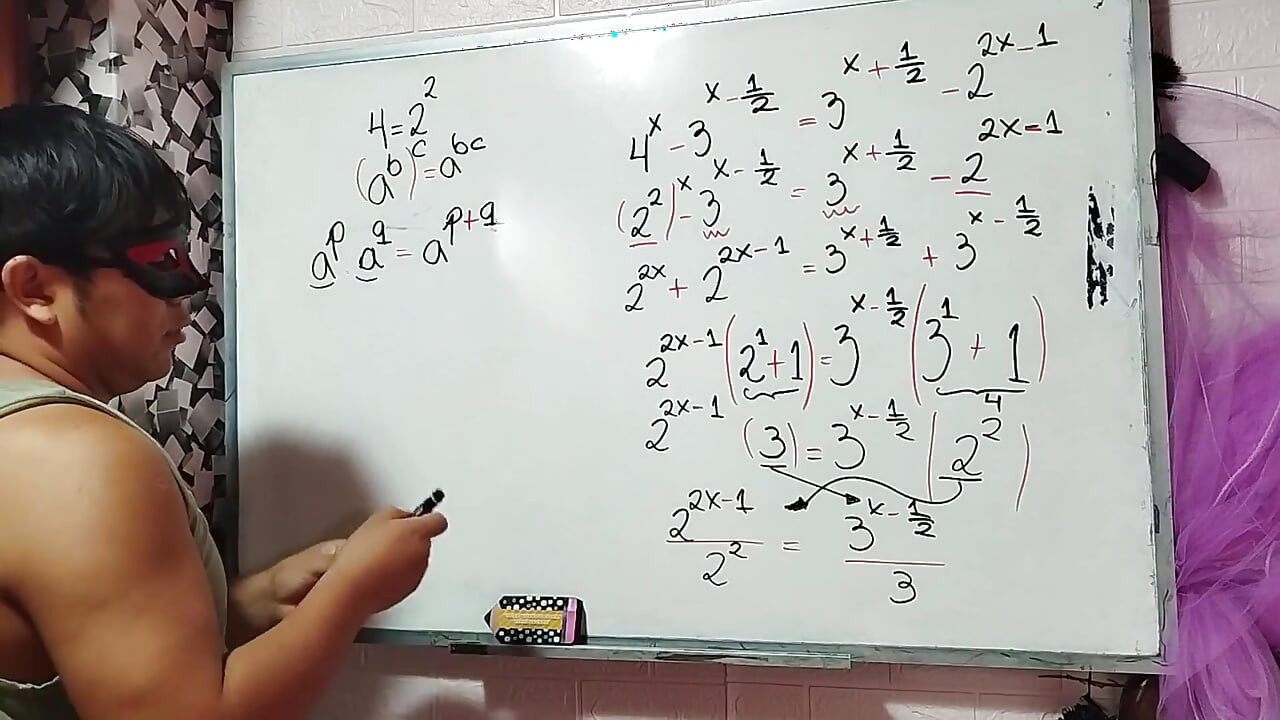 4=2²
(a^b)^c=a^{bc}
a^p·a^q=a^{p+q}
4^x-3^{x-1/2}=3^{x+1/2}-2^{2x-1}
(2²)^x-3^{x-1/2}=3^{x+1/2}-2^{2x-1}
2^{2x}+2^{2x-1}=3^{x+1/2}+3^{x-1/2}
2^{2x-1}(2¹+1)=3^{x-1/2}(3¹+1)
4
2^{2x-1}(3)=3^{x-1/2}(2²)
2^{2x-1}/2²=3^{x-1/2}/3